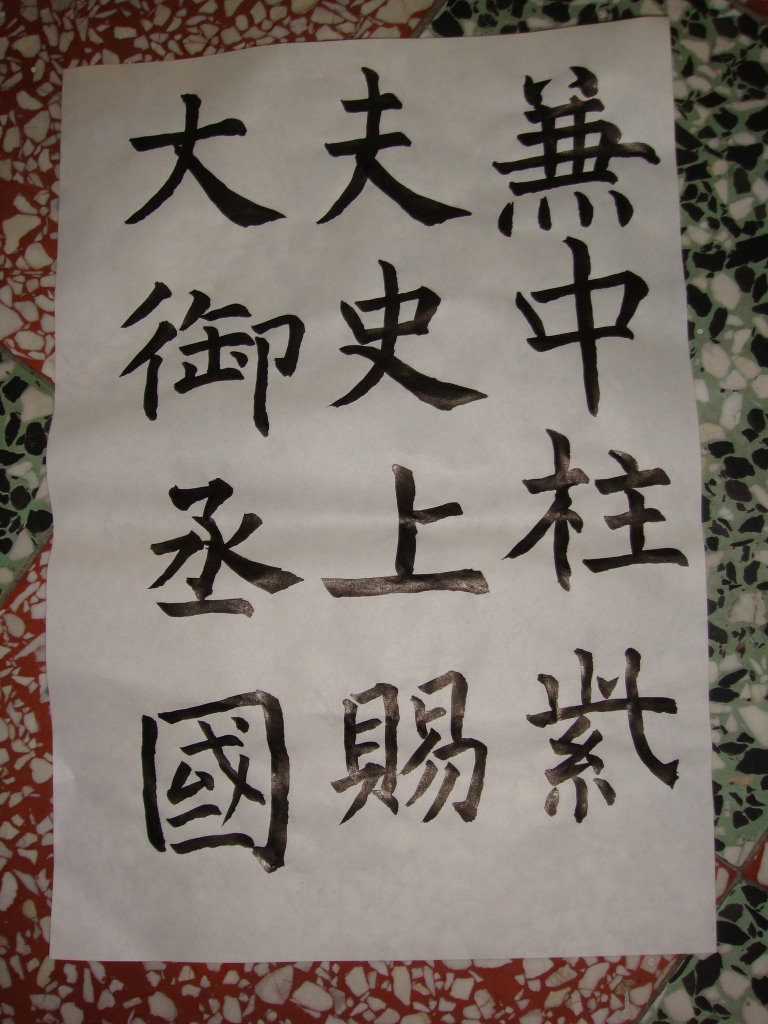 大夫兼
御史中
丞上柱
國賜紫